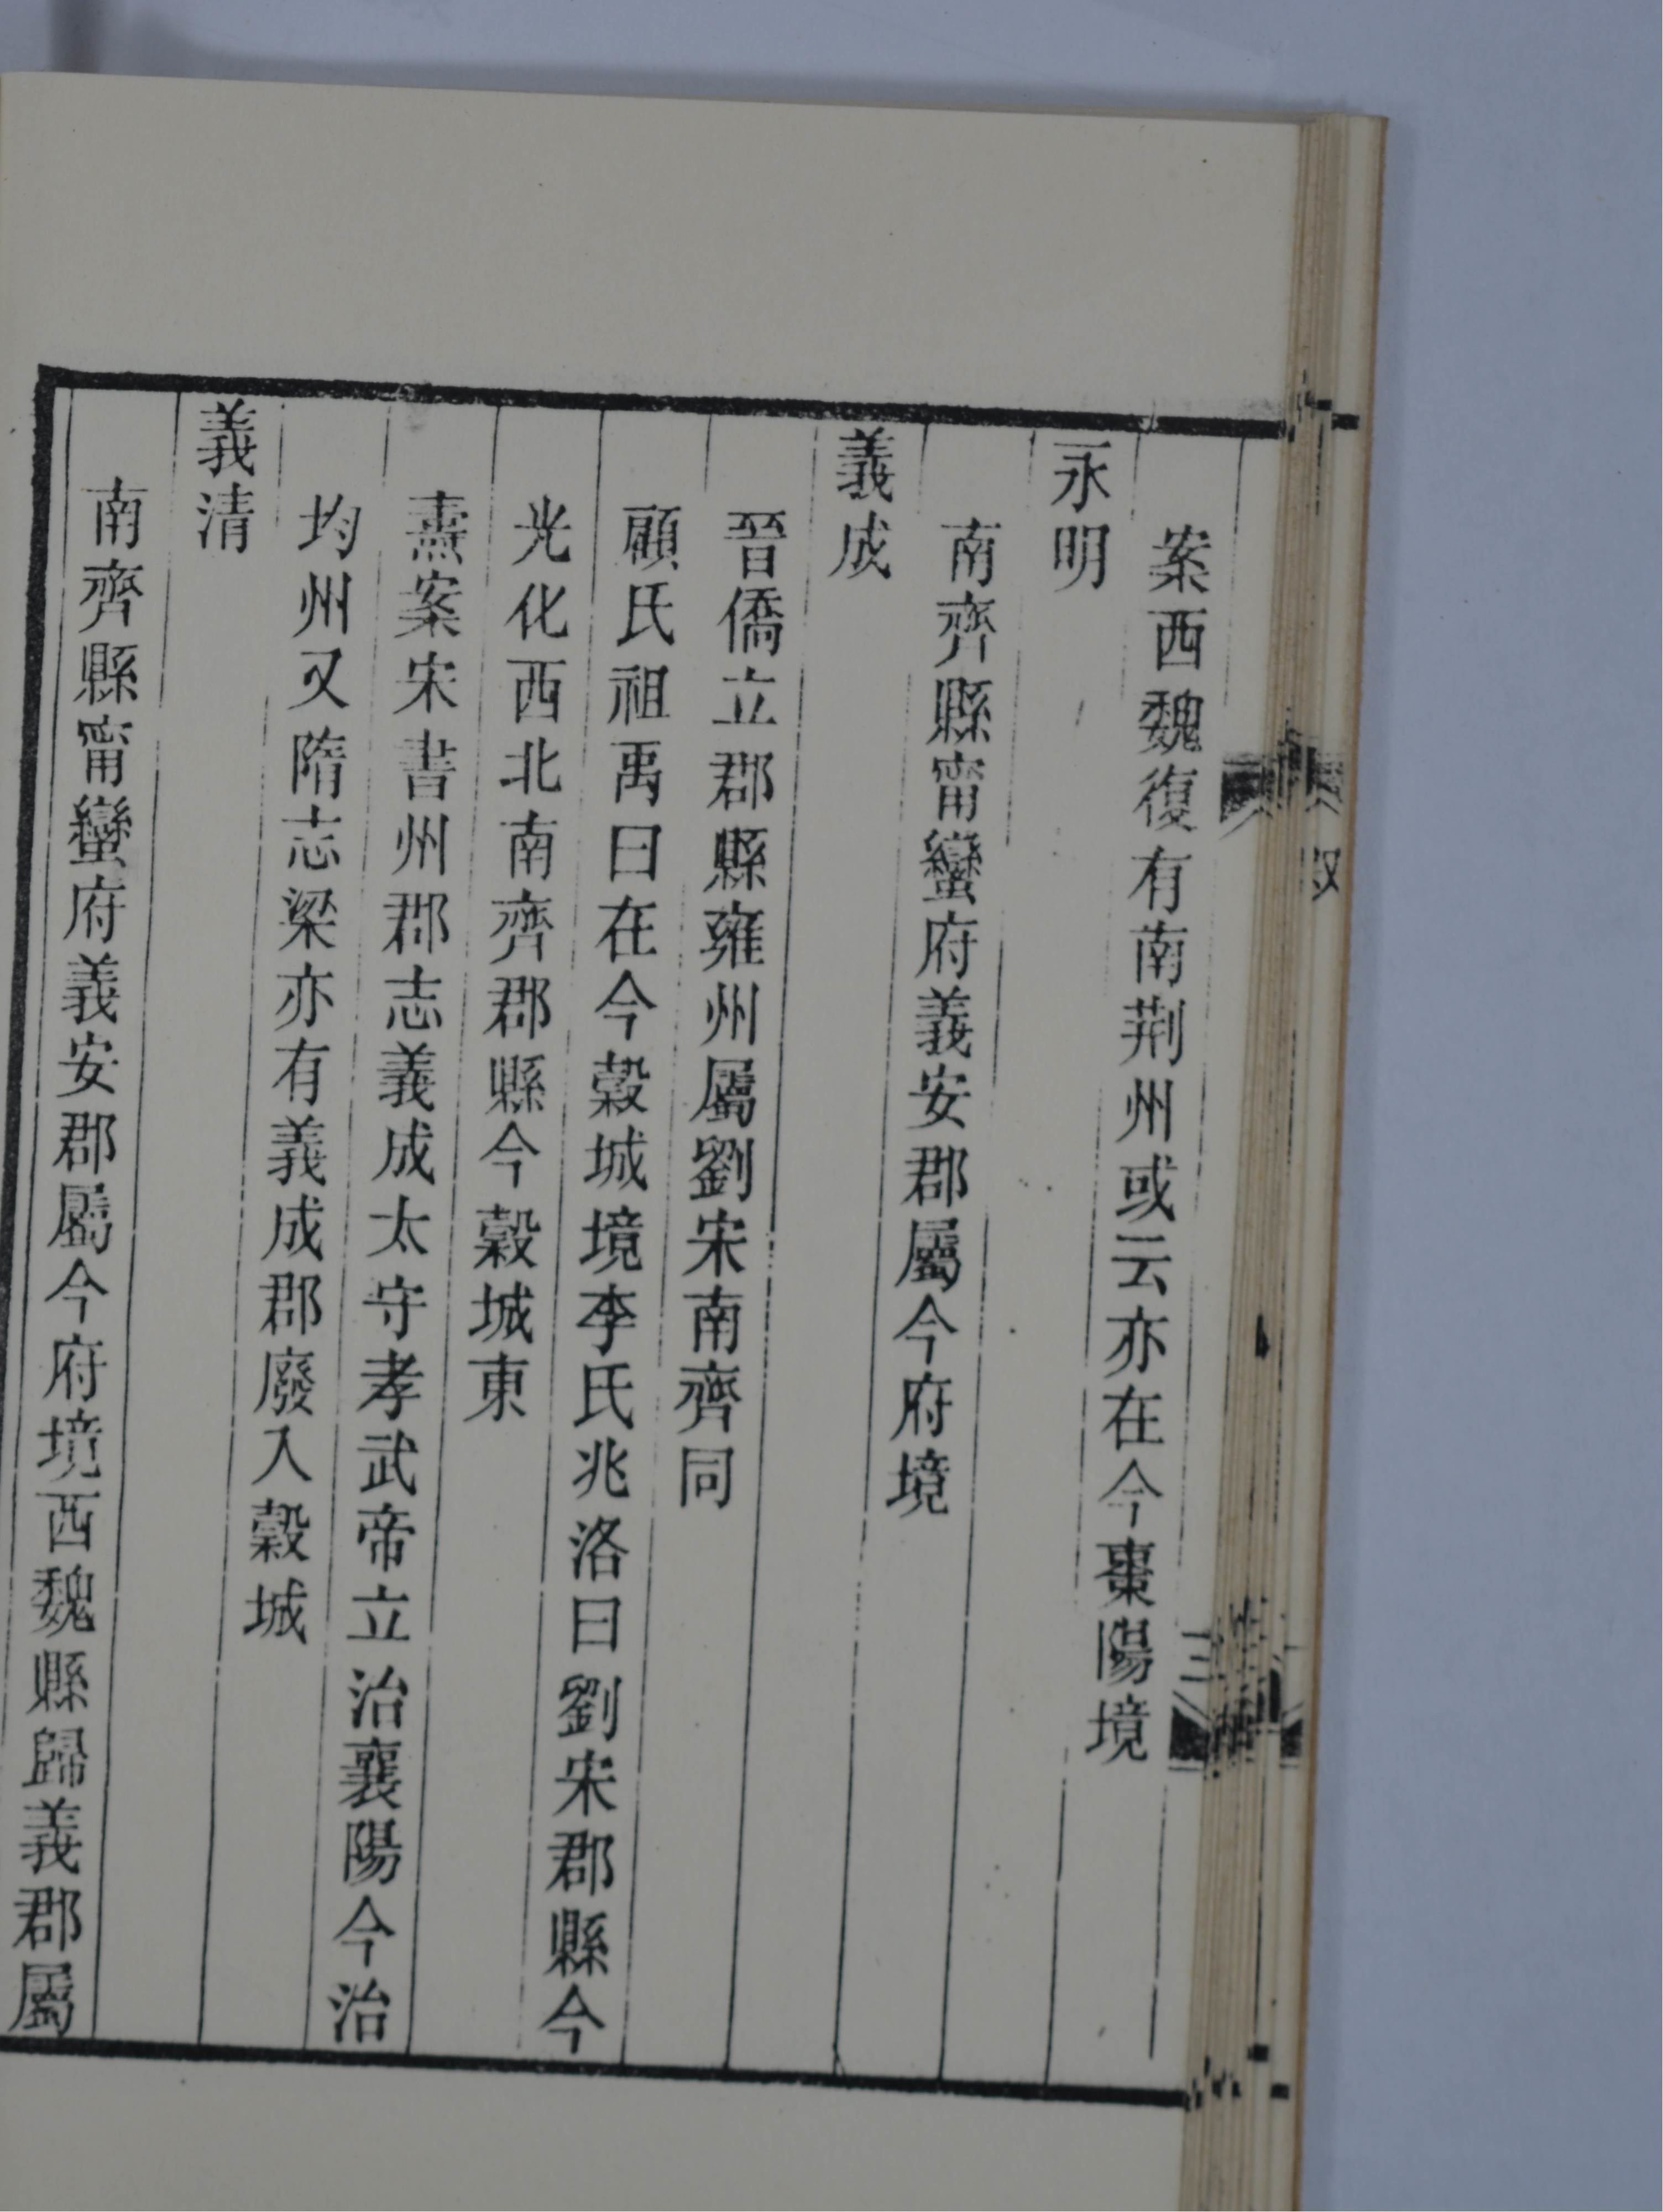 案西魏復有南荆州或云亦在今棗陽境
永明
南齊縣甯蠻府義安郡屬今府境
義成
晉僑立郡縣雍州屬劉宋南齊同
顧氏祖禹曰在今穀城境李氏兆洛曰劉宋郡縣今
光化西北南齊郡縣今穀城東
燾案宋書州郡志義成太守孝武帝立治襄陽今治
均州又隋志梁亦有義成郡廢入穀城
義清
南齊縣甯蠻府義安郡屬今府境西魏縣歸義郡屬